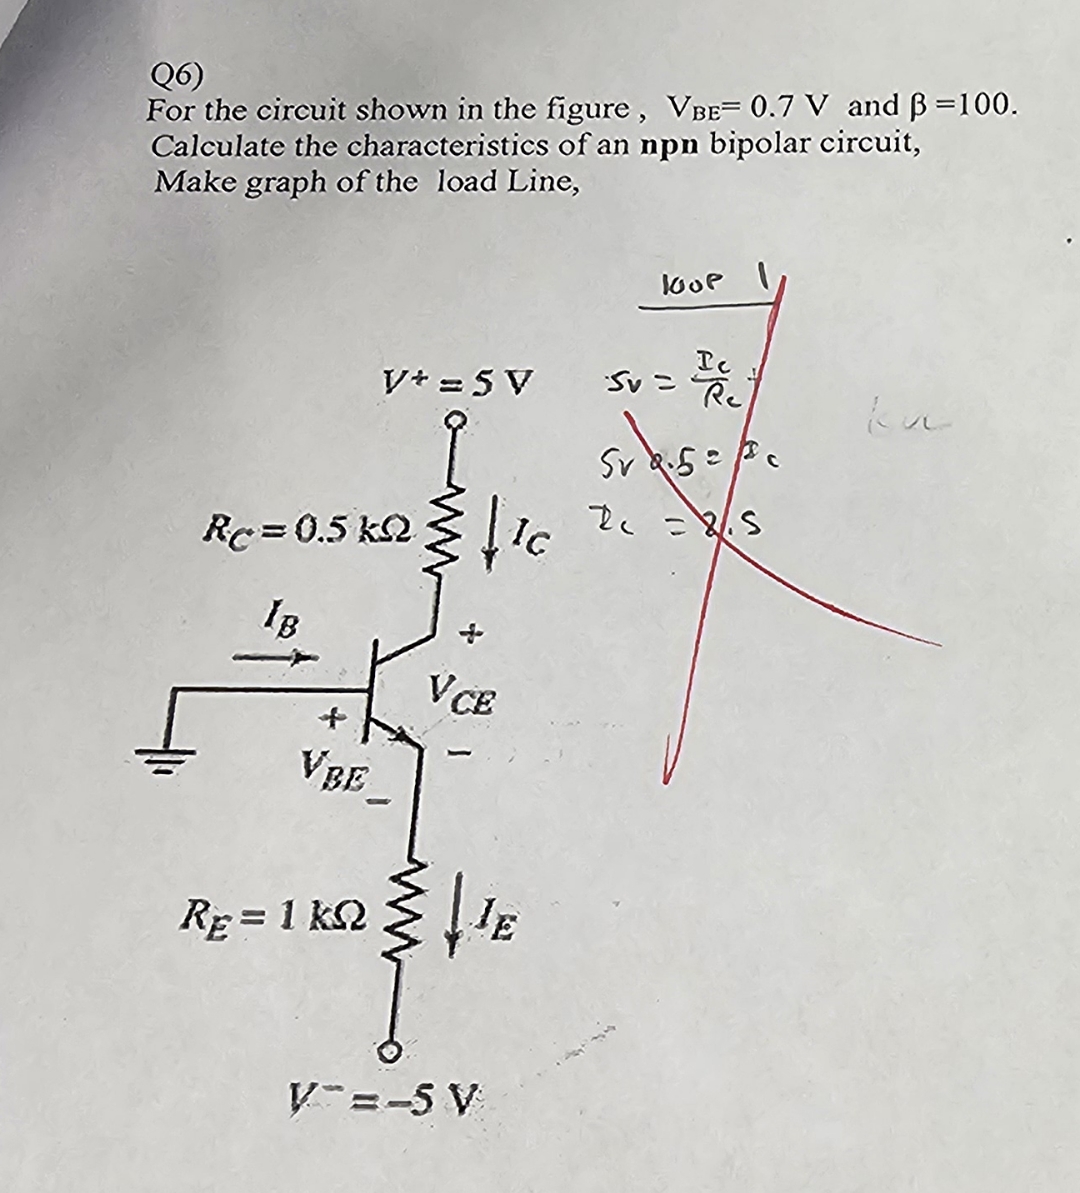 Q6)
For the circuit shown in the figure , V_BE= 0.7 V and β =100.
Calculate the characteristics of an npn bipolar circuit,
Make graph of the load Line,
loop 1
V⁺ = 5 V
5v = I_C / R_C +
5v 0.5 = I_C
R_C = 0.5 kΩ
I_C
I_C = 2.5
I_B
+
V_CE
+
−
V_BE
−
R_E = 1 kΩ
I_E
V⁻ = −5 V